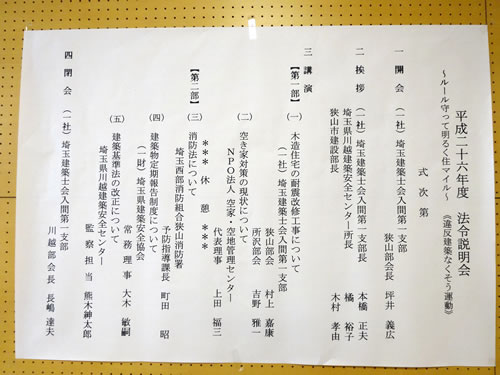 平成二十六年度　法令説明会
～ルール守って明るく住マイル～　《違反建築なくそう運動》
式　次　第
一　開　会　（一社）埼玉建築士会入間第一支部
狭山部会長　坪井　義広
二　挨　拶　（一社）埼玉建築士会入間第一支部長　本橋　正夫
埼玉県川越建築安全センター所長　橘　裕子
狭山市建設部長　木村　孝由
三　講　演
【第一部】（一）木造住宅の耐震改修工事について
（一社）埼玉建築士会入間第一支部
狭山部会　村上　嘉康
所沢部会　吉野　雅一
（二）空き家対策の現状について
NPO法人　空家・空地管理センター
代表理事　上田　福三
＊＊＊　休　憩　＊＊＊
【第二部】（三）消防法について
埼玉西部消防組合狭山消防署
予防指導課長　町田　昭
（四）建築物定期報告制度について
（一財）埼玉県建築安全協会
常務理事　大木　敏嗣
（五）建築基準法の改正について
埼玉県川越建築安全センター
監察担当　熊木紳太郎
四　閉　会　（一社）埼玉建築士会入間第一支部
川越部会長　長嶋　達夫